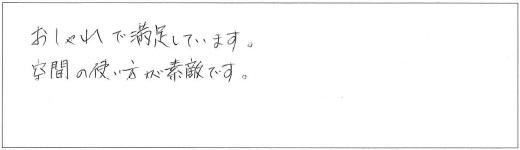 おしゃれで満足しています。
空間の使い方が素敵です。